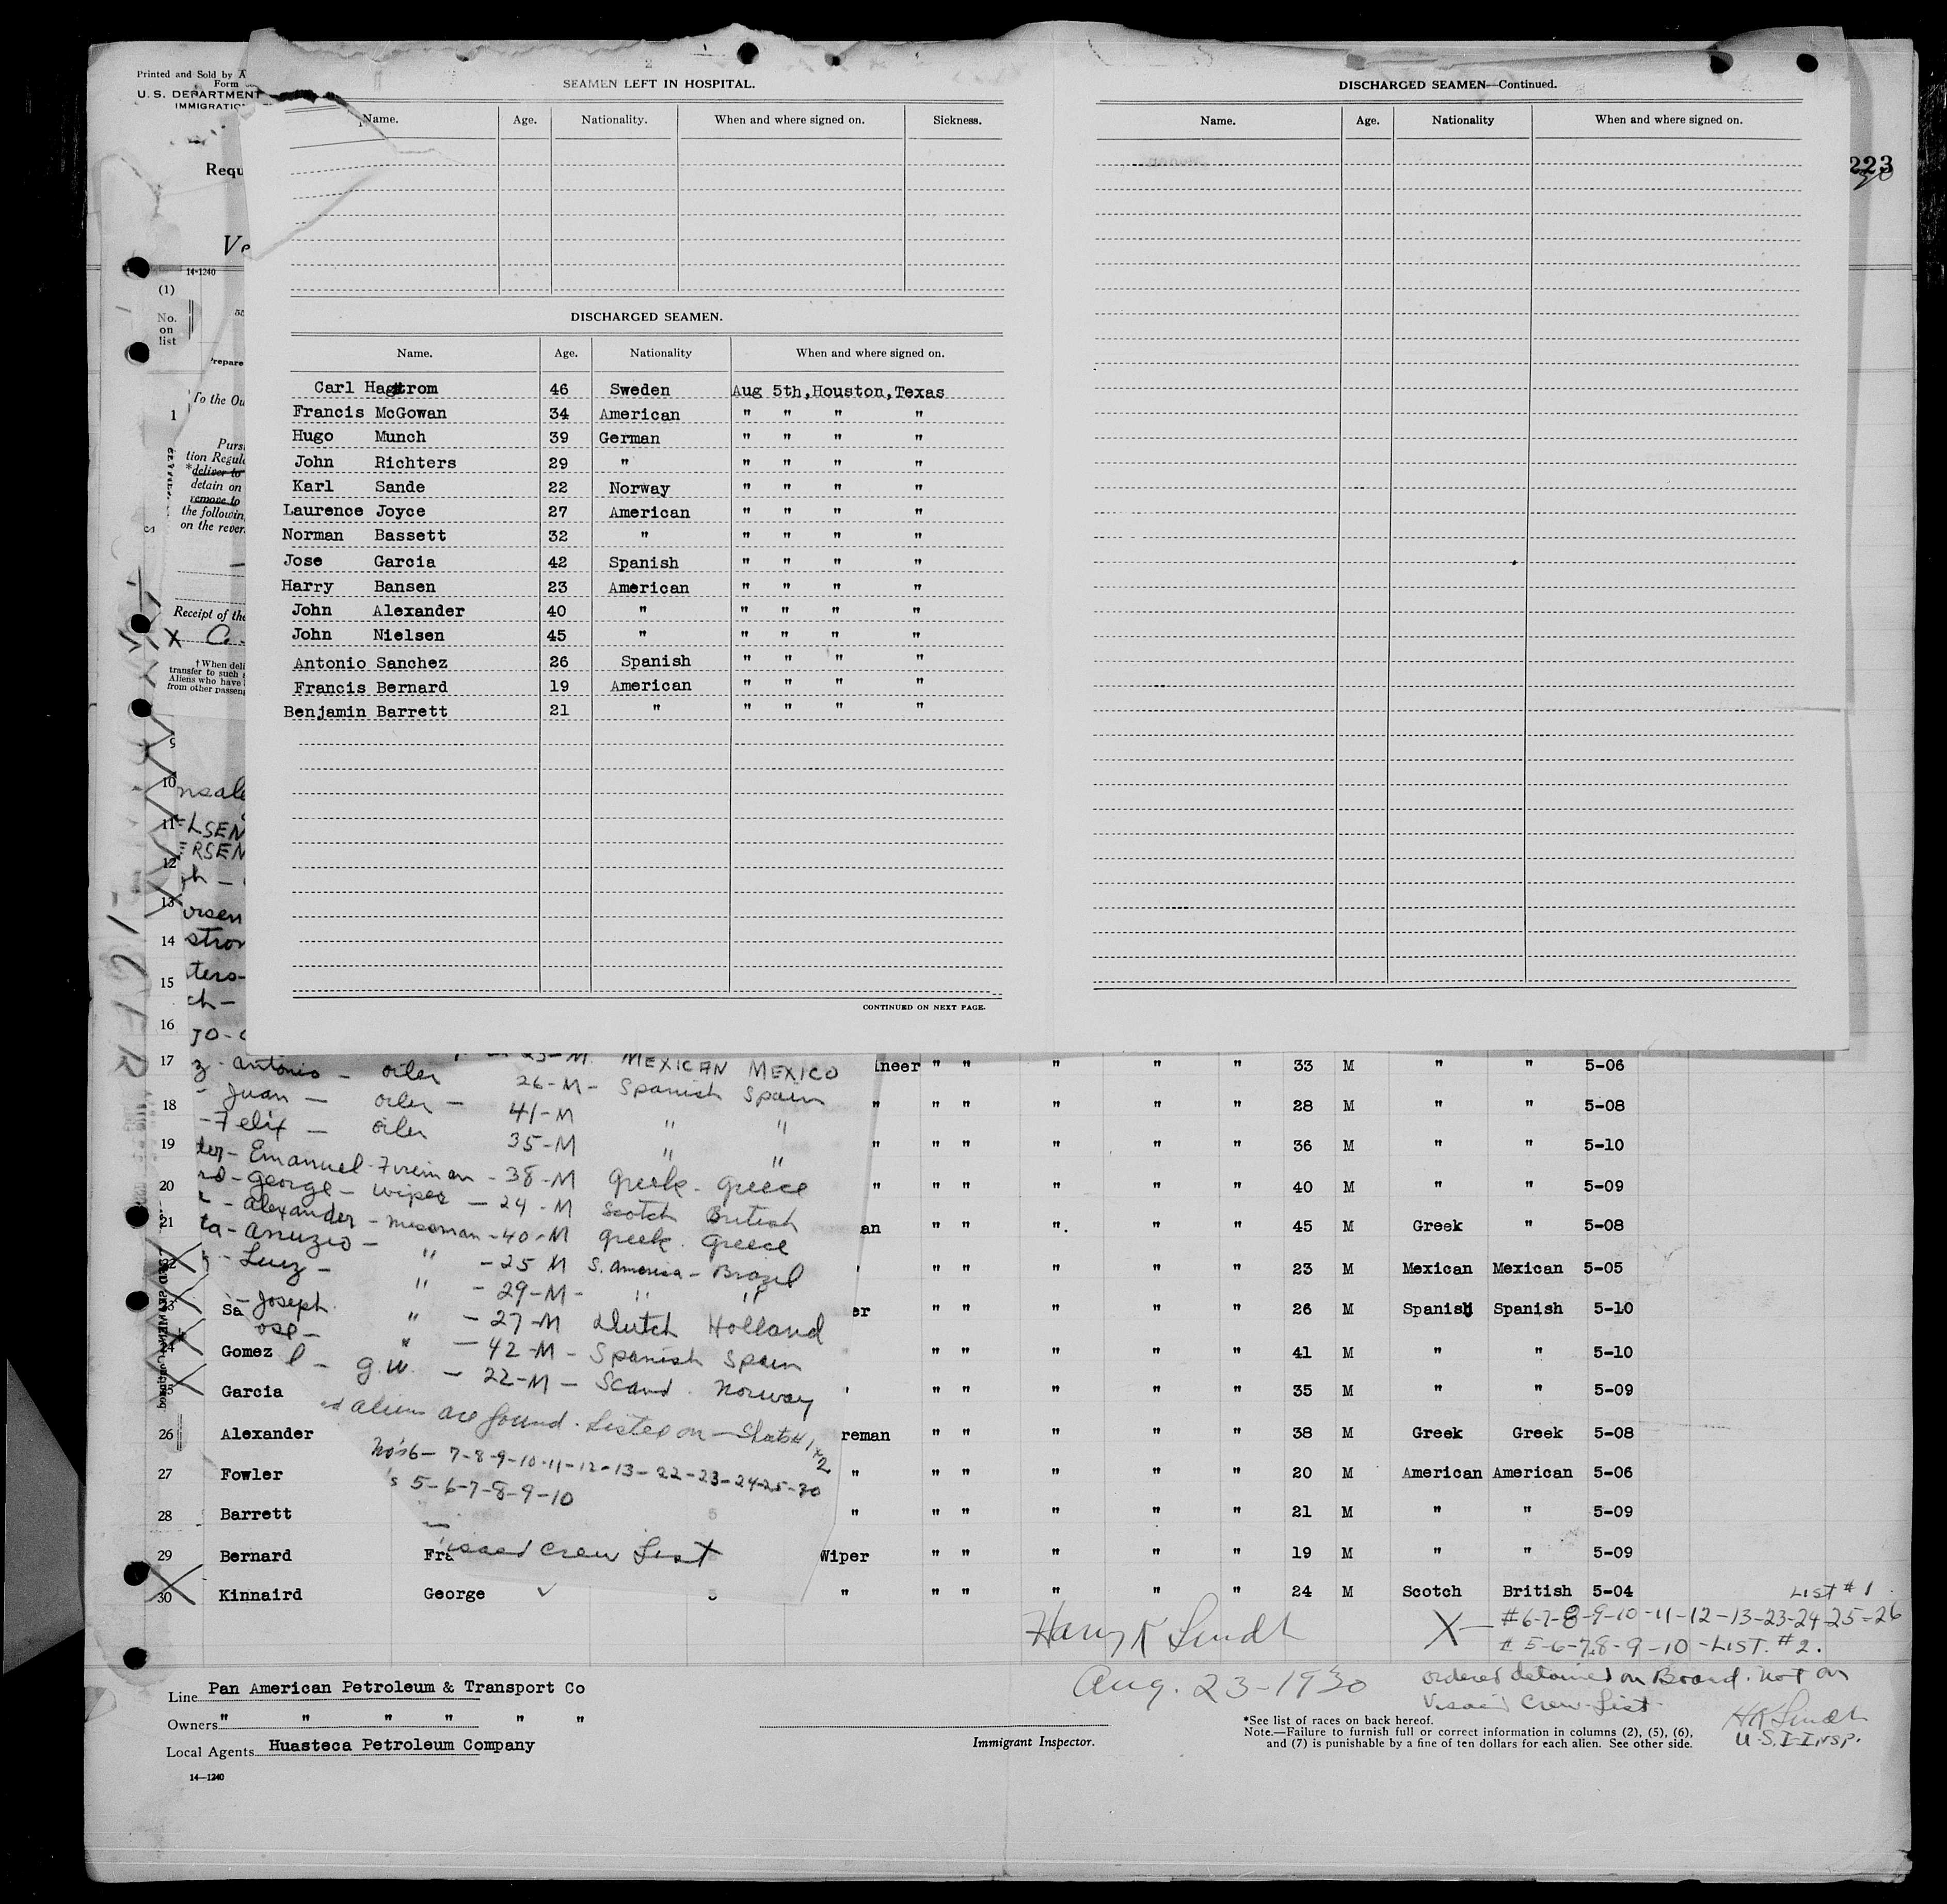 Printed and Sold by
Form
U. S. DEPARTMENT
IMMIGRATIO
Requ
Ve
14-1240
(1)
No.
on
list
Prepare
To the Ou
1
Purs
tion Regul
*deliver to
detain on
remove to
the followin
on the rever
Receipt of the
X
† When deli
transfer to such
Aliens who have
from other passen
223
SEAMEN LEFT IN HOSPITAL.
Name. Age. Nationality. When and where signed on. Sickness.
DISCHARGED SEAMEN.
Name. Age. Nationality When and where signed on.
Carl Hagstrom 46 Sweden Aug 5th,Houston,Texas
Francis McGowan 34 American " " " "
Hugo Munch 39 German " " " "
John Richters 29 " " " " "
Karl Sande 22 Norway " " " "
Laurence Joyce 27 American " " " "
Norman Bassett 32 " " " " "
Jose Garcia 42 Spanish " " " "
Harry Bansen 23 American " " " "
John Alexander 40 " " " " "
John Nielsen 45 " " " " "
Antonio Sanchez 26 Spanish " " " "
Francis Bernard 19 American " " " "
Benjamin Barrett 21 " " " " "
CONTINUED ON NEXT PAGE.
DISCHARGED SEAMEN—Continued.
Name. Age. Nationality When and where signed on.
9
10
11 ELSEN
12 ERSEN
13
14 strom
15
16
23-M. MEXICAN MEXICO
z - Antonio - oiler 26-M - Spanish Spain
- Juan - oiler - 41-M " "
- Felix - oiler 35-M " "
- Emanuel - Fireman - 38-M Greek - Greece
- George - Wiper - 24-M Scotch British
- Alexander - messman - 40-M Greek. Greece
ta - Anuzio - " - 25 M S. America - Brazil
- Luiz - " - 29-M - " "
- Joseph " - 27-M Dutch Holland
ose - " - 42-M - Spanish Spain
l - g.w. - 22-M - Scand. Norway
aliens are found listed on - Sheets # 1 + 2
No's 6-7-8-9-10-11-12-13-22-23-24-25-30
's 5-6-7-8-9-10
Visaed Crew List
17 ineer " " " " " 33 M " " 5-06
18 " " " " " " 28 M " " 5-08
19 " " " " " " 36 M " " 5-10
20 " " " " " " 40 M " " 5-09
21 an " " " " " 45 M Greek " 5-08
22 " " " " " 23 M Mexican Mexican 5-05
23 Sa er " " " " " 26 M Spanish Spanish 5-10
24 Gomez " " " " " 41 M " " 5-10
25 Garcia " " " " " 35 M " " 5-09
26 Alexander reman " " " " " 38 M Greek Greek 5-08
27 Fowler " " " " " " 20 M American American 5-06
28 Barrett 5 " " " " " " 21 M " " 5-09
29 Bernard Fra Wiper " " " " " 19 M " " 5-09
30 Kinnaird George 5 " " " " " " 24 M Scotch British 5-04
LIST # 1
X - # 6-7-8-9-10-11-12-13-23-24-25-26
# 5-6-7-8-9-10 - LIST. # 2.
ordered detained on Board. not on
Visaed Crew List
HK Lindt
U.S.I-Insp.
Harry K Lindt
Aug. 23-1930
Line Pan American Petroleum & Transport Co
Owners " " " " " "
Local Agents Huasteca Petroleum Company
14—1240
Immigrant Inspector.
*See list of races on back hereof.
Note.—Failure to furnish full or correct information in columns (2), (5), (6),
and (7) is punishable by a fine of ten dollars for each alien. See other side.